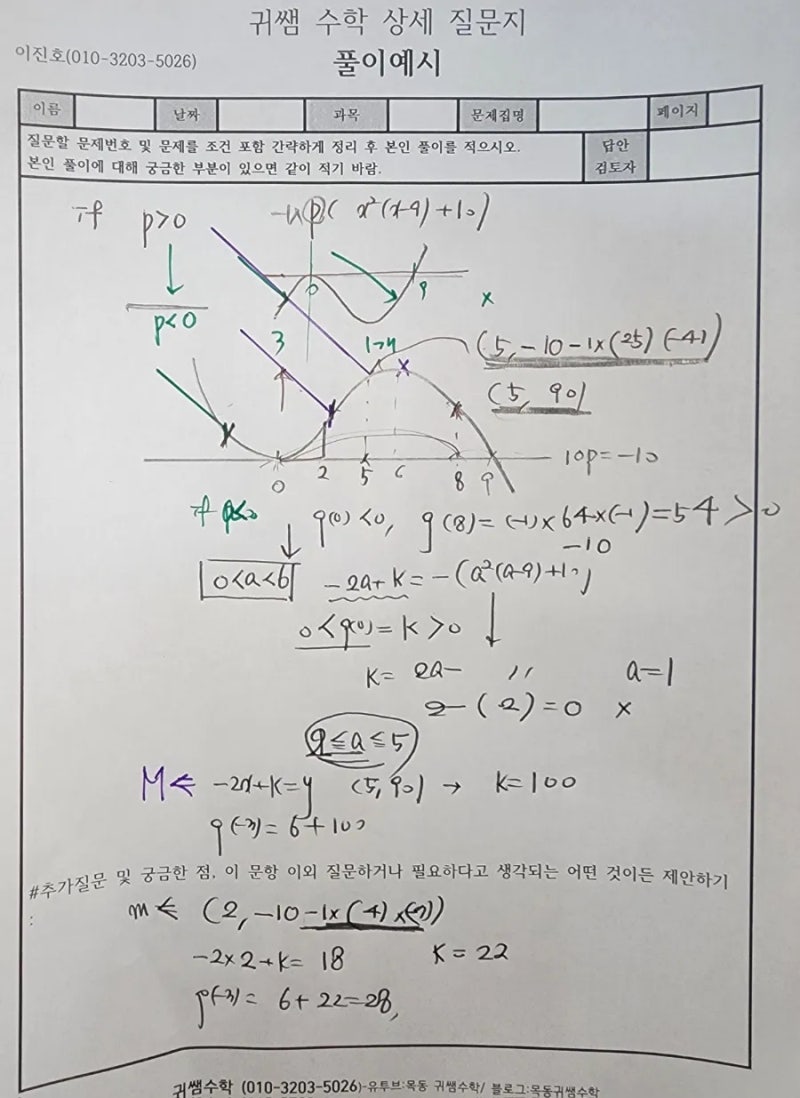 귀쌤 수학 상세 질문지
이진호(010-3203-5026)
풀이예시
이름 날짜 과목 문제집명 페이지
질문할 문제번호 및 문제를 조건 포함 간략하게 정리 후 본인 풀이를 적으시오.
본인 풀이에 대해 궁금한 부분이 있으면 같이 적기 바람.
답안
검토자
if p>0
p( x²(x-9)+10)
p<0
0 9 x
3
(5, -10-1x(25)(-4))
(5, 90)
0 2 5 6 8 9
10p=-10
if p<0
g(0)<0, g(8)=(-1)x64x(-1)=54>0
-10
0<a<b
-2a+k=-(a²(a-9)+10)
0<g(0)=k>0
k= 2a- 〃 a=1
2-(2)=0 x
2≤a≤5
M⇐ -2x+k=y (5,90) → k=100
g(-3)=6+100
#추가질문 및 궁금한 점, 이 문항 이외 질문하거나 필요하다고 생각되는 어떤 것이든 제안하기
:
m⇐ (2, -10-1x(4)x(-7))
-2x2+k= 18 k=22
g(-3)= 6+22=28,
귀쌤수학 (010-3203-5026)-유투브:목동 귀쌤수학/ 블로그:목동귀쌤수학